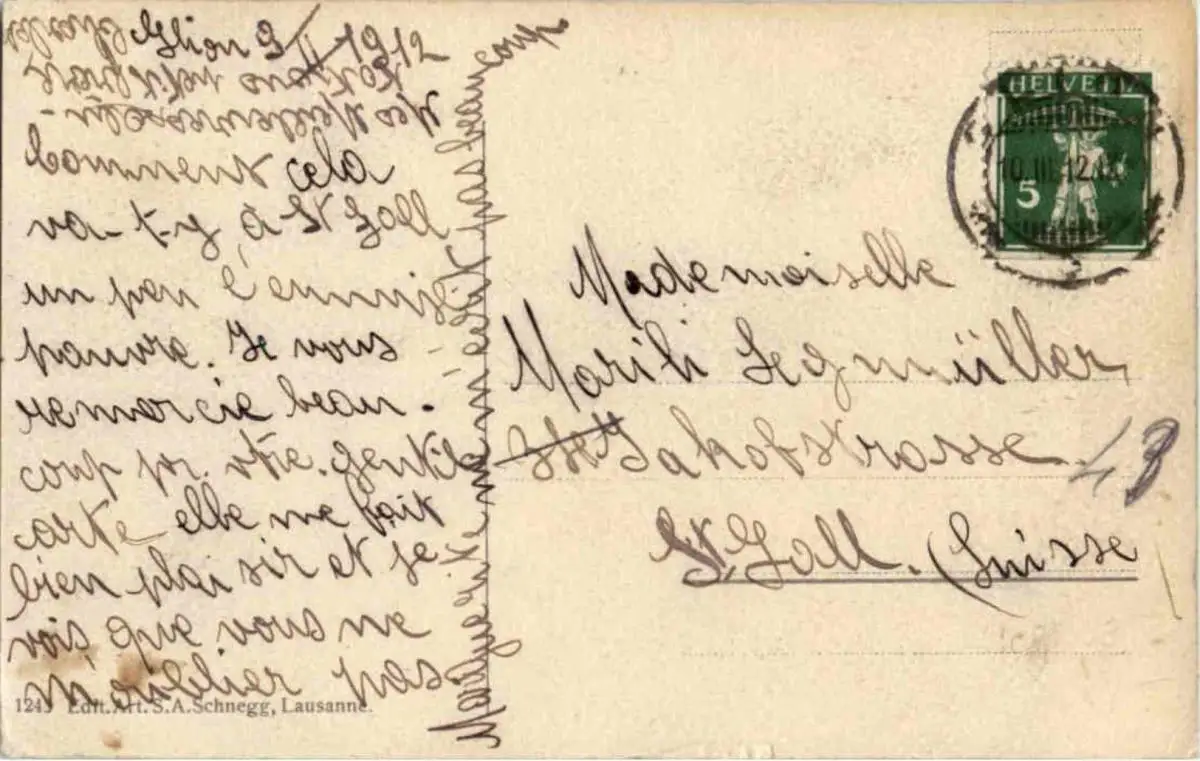 Glion 9/II 1912
Comment cela
va-t-y, à St Gall
un peu l'ennui
pauvre. Je vous
remercie beau-
coup pr. vtre. gentile
carte elle me fait
bien plaisir et je
vois que vous ne
m'oublier pas
Marguerite ne m'écrit pas beaucoup
HELVETIA
5
10.III.12
Mademoiselle
Marili Segmüller,
Jakobstrasse 43
St. Gall. (Suisse
Edit. Art. S.A. Schnegg, Lausanne.